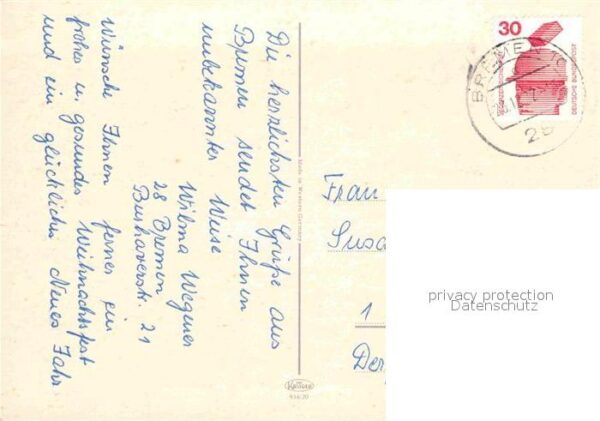 Die herzlichsten Grüße aus
Bremen sendet Ihnen
unbekannter Weise
Wilma Wegner
28 Bremen
Buxhaverstr. 21
Wünsche Ihnen ferner ein
frohes u. gesundes Weihnachtsfest
und ein glückliches Neues Jahr
Made in Western Germany
Krüger
30
DEUTSCHE BUNDESPOST
BREMEN
28
Frau
Susa
1
Der
privacy protection
Datenschutz